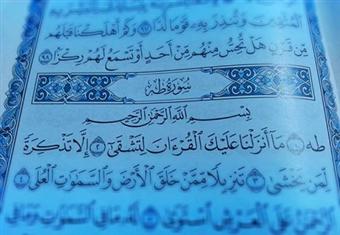 ٱلۡمُتَّقِينَ وَتُنذِرَ بِهِۦ قَوۡمٗا لُّدّٗا ٩٧ وَكَمۡ أَهۡلَكۡنَا قَبۡلَهُم
مِّن قَرۡنٍ هَلۡ تُحِسُّ مِنۡهُم مِّنۡ أَحَدٍ أَوۡ تَسۡمَعُ لَهُمۡ رِكۡزَۢا ٩٨
سُورَةُ طه
بِسۡمِ ٱللَّهِ ٱلرَّحۡمَٰنِ ٱلرَّحِيمِ
طه ١ مَآ أَنزَلۡنَا عَلَيۡكَ ٱلۡقُرۡءَانَ لِتَشۡقَىٰٓ ٢ إِلَّا تَذۡكِرَةٗ
لِّمَن يَخۡشَىٰ ٣ تَنزِيلٗا مِّمَّنۡ خَلَقَ ٱلۡأَرۡضَ وَٱلسَّمَٰوَٰتِ ٱلۡعُلَى ٤
عَلَى ٱلۡعَرۡشِ ٱسۡتَوَىٰ ٥ لَهُۥ مَا فِي ٱلسَّمَٰوَٰتِ وَمَا فِي